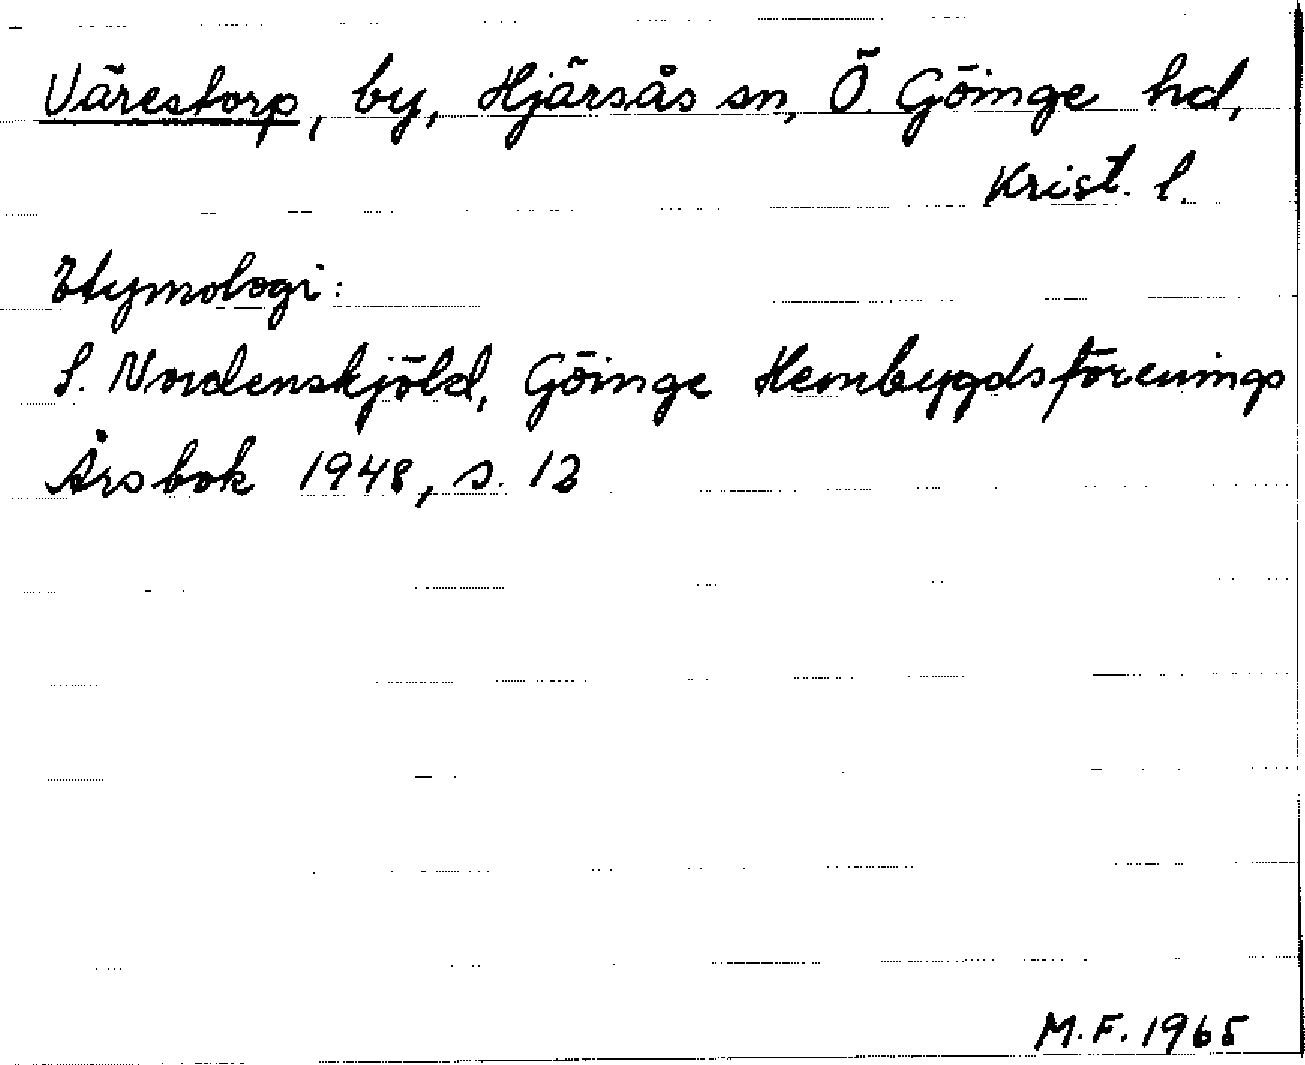 Värestorp, by, Hjärsås sn, Ö Göinge hd,
Krist. l.
Etymologi:
S. Nordenskjöld, Göinge Hembygdsförenings
Årsbok 1948, s. 12
M.F. 1965